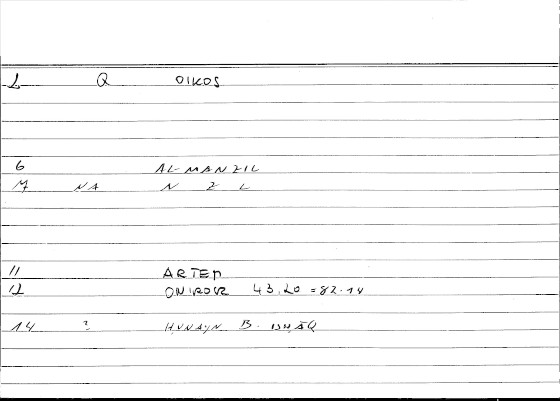 1 Q OIKOS
6 AL-MANZIL
7 NA N Z L
11 ARTEM
12 ONIROCR 43.20 = 82.14
14 ? HUNAYN B. ISḤĀQ